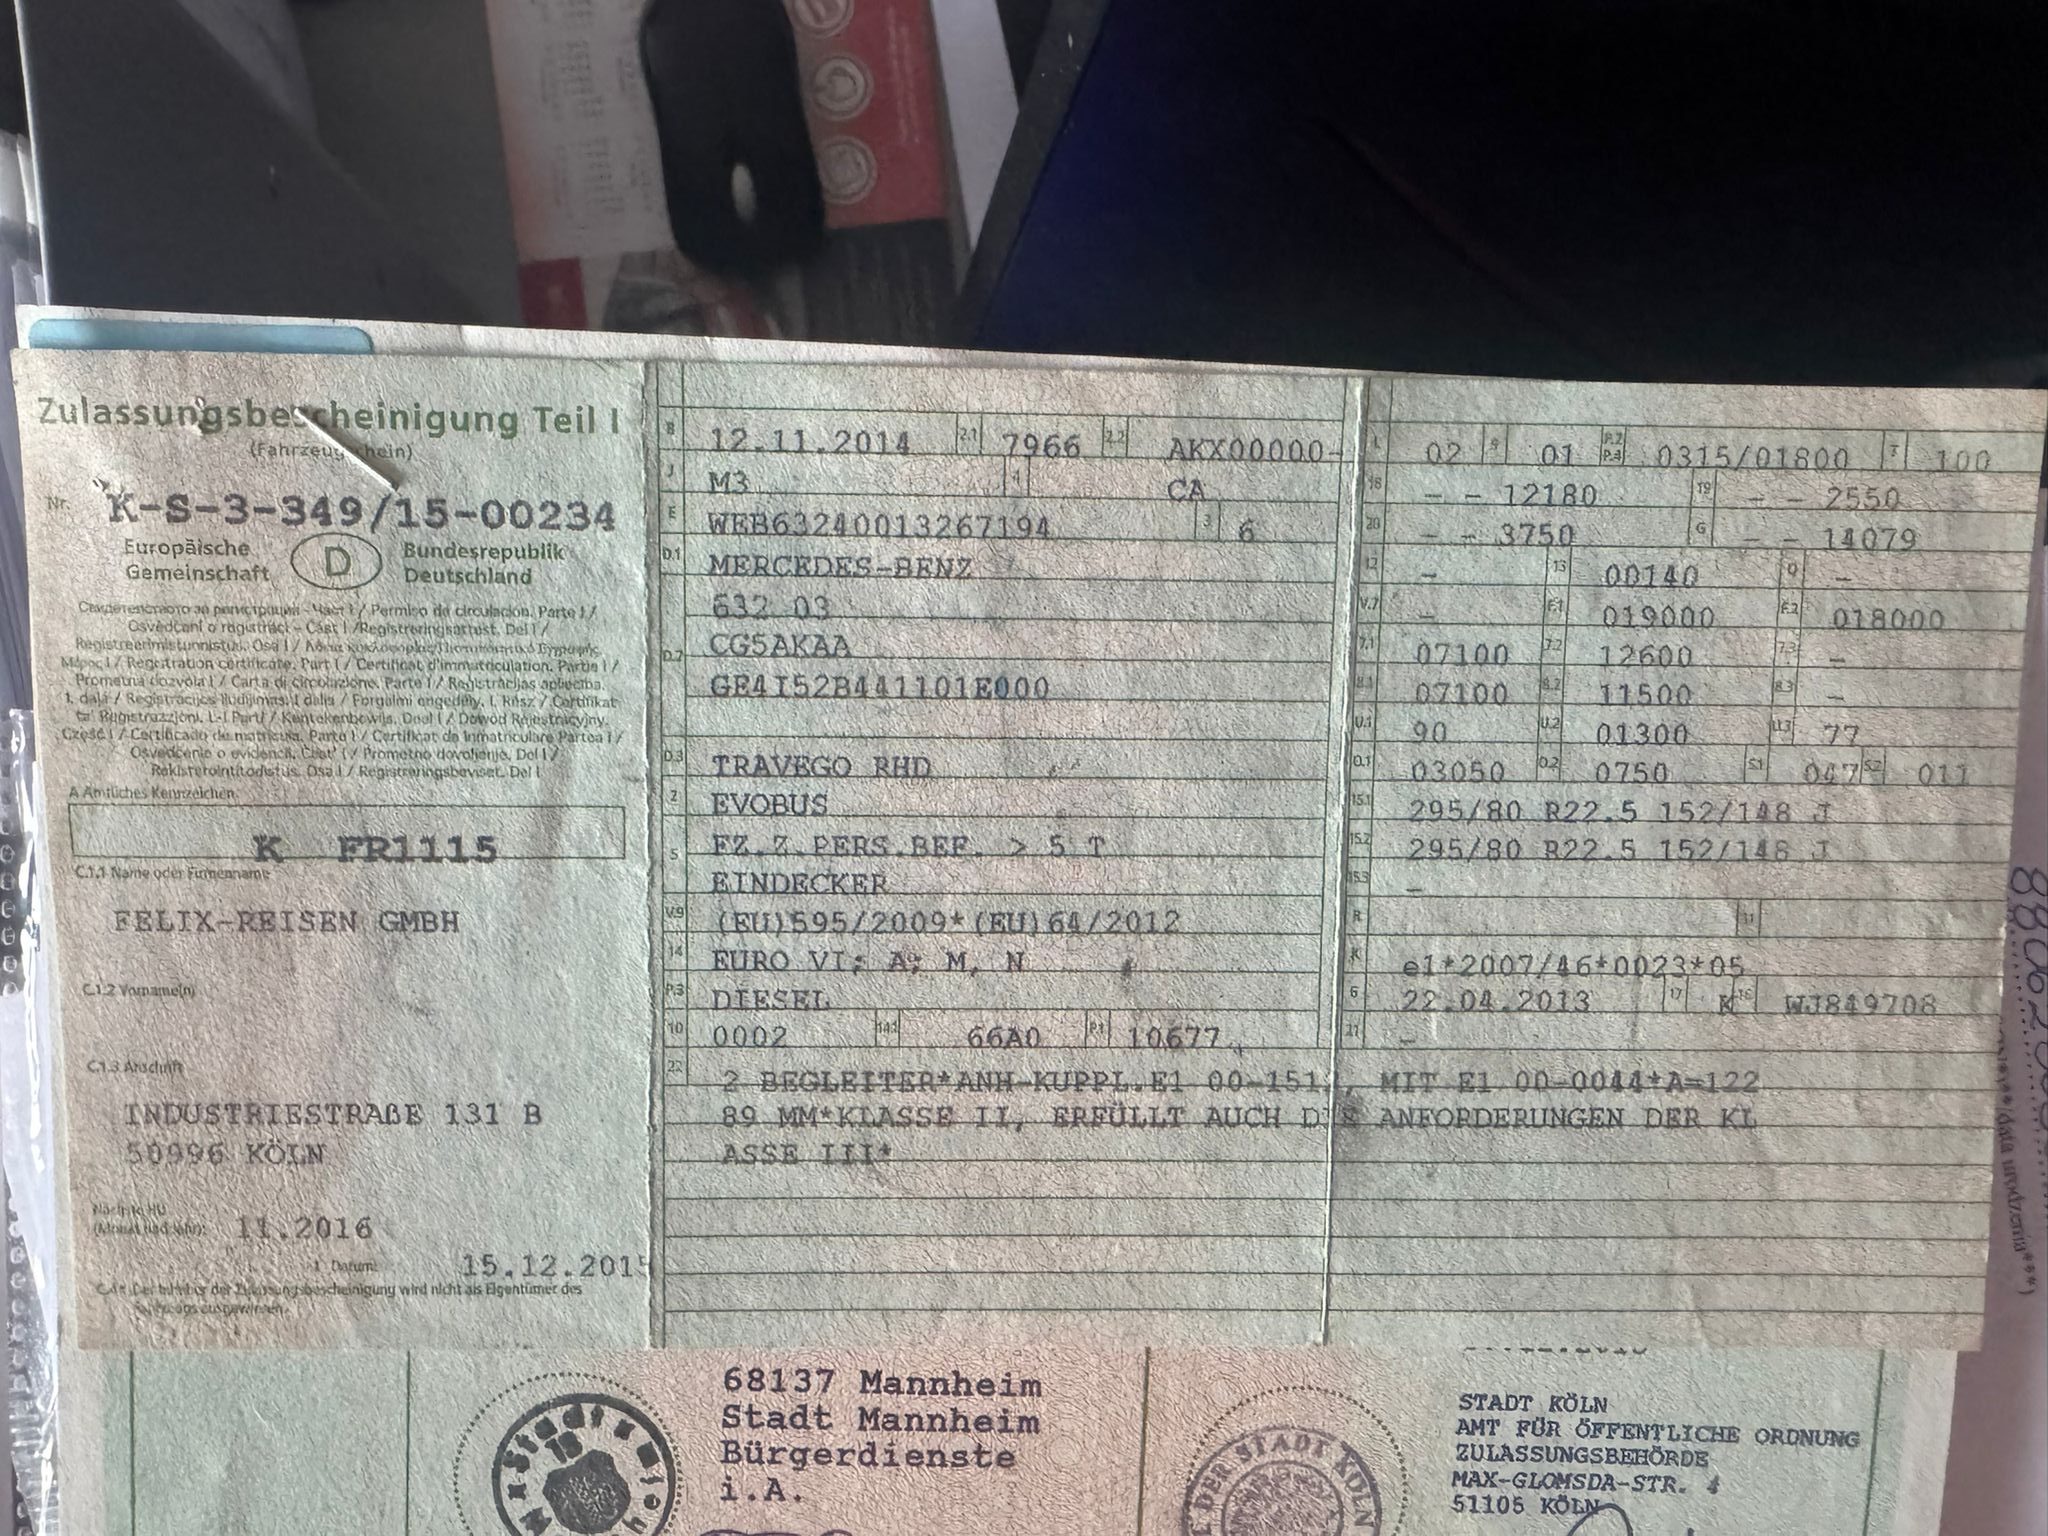 Zulassungsbescheinigung Teil I
(Fahrzeugschein)
Nr. K-S-3-349/15-00234
Europäische Gemeinschaft
D
Bundesrepublik Deutschland
Osvědčení o registraci – Část I / Registreringsattest. Del I /
Registreerimistunnistus. Osa I /
/ Registration certificate. Part I / Certificat d'immatriculation. Partie I /
Prometna dozvola I / Carta di circolazione. Parte I / Reģistrācijas apliecība.
1. daļa / Registracijos liudijimas. I dalis / Forgalmi engedély. I. Rész / Ċertifikat
ta' Reġistrazzjoni. L-I Parti / Kentekenbewijs. Deel I / Dowód Rejestracyjny.
Część I / Certificado de matrícula. Parte I / Certificat de înmatriculare Partea I /
Osvedčenie o evidencii. Časť I / Prometno dovoljenje. Del I /
Rekisteröintitodistus. Osa I / Registreringsbeviset. Del I
A Amtliches Kennzeichen
K FR1115
C.1.1 Name oder Firmenname
FELIX-REISEN GMBH
C.1.2 Vorname(n)
C.1.3 Anschrift
INDUSTRIESTRAßE 131 B
50996 KÖLN
Nächste HU
(Monat und Jahr): 11.2016
Datum: 15.12.201
C.4c Der Inhaber der Zulassungsbescheinigung wird nicht als Eigentümer des
Fahrzeugs ausgewiesen.
B 12.11.2014 2.1 7966 2.2 AKX00000-
J M3 4 CA
E WEB63240013267194 3 6
D.1 MERCEDES-BENZ
632 03
D.2 CG5AKAA
GE4I52B441101E000
D.3 TRAVEGO RHD
2 EVOBUS
5 FZ.Z.PERS.BEF. > 5 T
EINDECKER
V.9 (EU)595/2009*(EU)64/2012
14 EURO VI; A; M, N
P.3 DIESEL
10 0002 14.1 66A0 P.1 10677
L 02 9 01 P.2 P.4 0315/01800 T 100
18 - - 12180 19 - - 2550
20 - - 3750 G - - 14079
12 - 13 00140 Q -
V.7 - F.1 019000 F.2 018000
7.1 07100 7.2 12600 7.3 -
8.1 07100 8.2 11500 8.3 -
U.1 90 U.2 01300 U.3 77
O.1 03050 O.2 0750 S.1 047 S.2 011
15.1 295/80 R22.5 152/148 J
15.2 295/80 R22.5 152/148 J
15.3 -
R 11
K e1*2007/46*0023*05
6 22.04.2013 17 K 16 WJ849708
21 -
22 2 BEGLEITER*ANH-KUPPL.E1 00-151 , MIT E1 00-0044*A=122
89 MM*KLASSE II, ERFÜLLT AUCH DIE ANFORDERUNGEN DER KL
ASSE III*
68137 Mannheim
Stadt Mannheim
Bürgerdienste
i.A.
STADT KÖLN
AMT FÜR ÖFFENTLICHE ORDNUNG
ZULASSUNGSBEHÖRDE
MAX-GLOMSDA-STR. 4
51105 KÖLN
DER STADT KÖLN